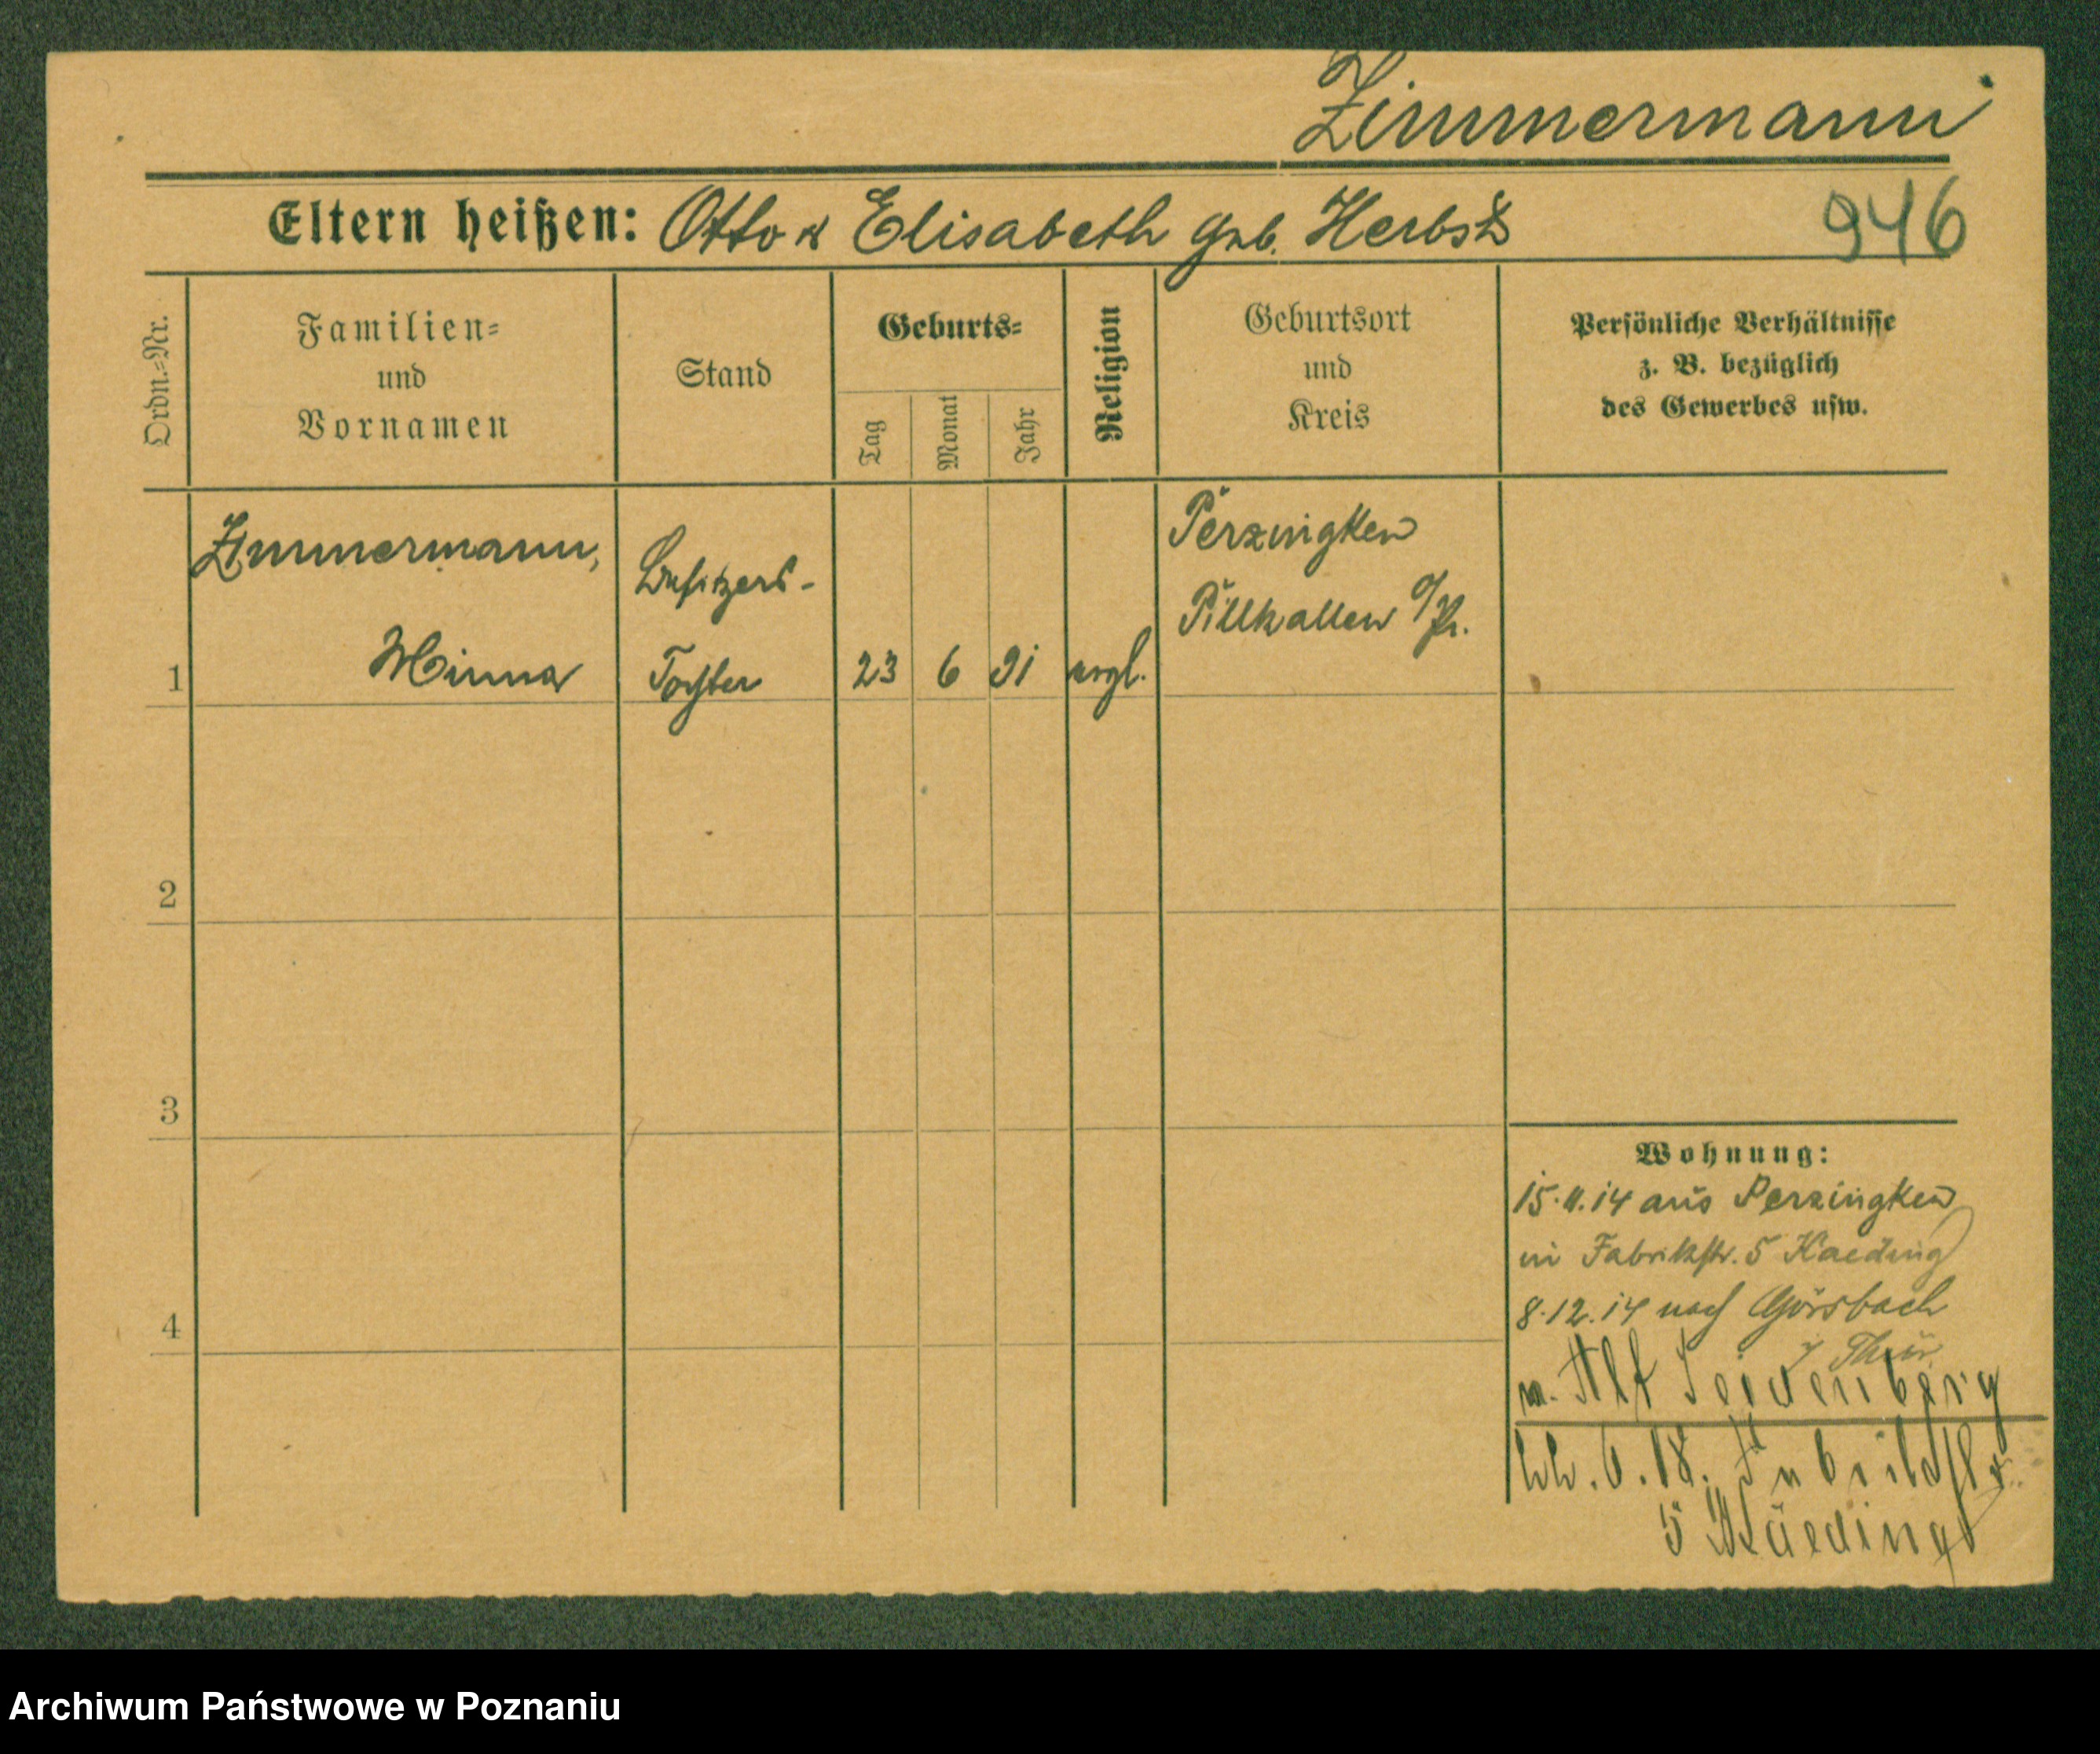 Zimmermann
Eltern heißen: Otto u Elisabeth geb. Herbst
946
Ordn.-Nr.
Familien-
und
Vornamen
Stand
Geburts-
Tag
Monat
Jahr
Religion
Geburtsort
und
Kreis
Persönliche Verhältnisse
z. B. bezüglich
des Gewerbes usw.
Zimmermann,
Besitzers-
Perzingken
Pillkallen O/Pr.
1 Minna Tochter 23 6 91 evgl.
2
3
4
Wohnung:
15.11.14 aus Perzingken
in Fabrikstr. 5 Kaeding
8.12.14 nach Görsbach
i/ Thür.
Alt Seidenberg
6.18. Fabrikstr.
5 Kaeding
Archiwum Państwowe w Poznaniu